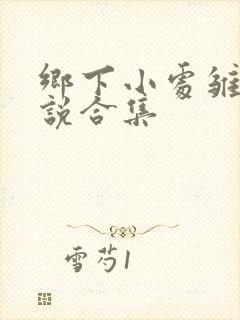 鄉下小處雛
說合集
雪芍1